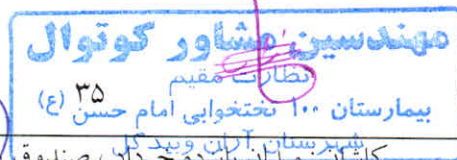 مهندسین مشاور کوتوال
نظارت مقیم
بیمارستان ۱۰۰ تختخوابی امام حسن (ع)
۳۵
شهرستان آران وبیدگل
کاشان
صندوق